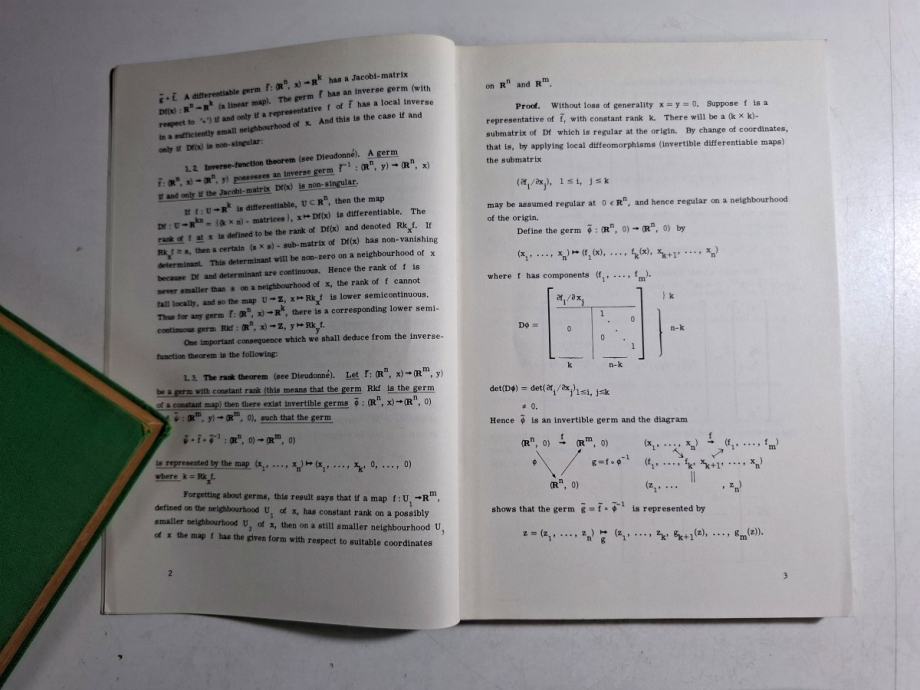 g̃ ∘ f̃. A differentiable germ f̃ : (ℝⁿ, x) → ℝᵏ has a Jacobi-matrix
Df(x) : ℝⁿ → ℝᵏ (a linear map). The germ f̃ has an inverse germ (with
respect to '∘') if and only if a representative f of f̃ has a local inverse
in a sufficiently small neighbourhood of x. And this is the case if and
only if Df(x) is non-singular:
1.2. Inverse-function theorem (see Dieudonné). A germ
f̃ : (ℝⁿ, x) → (ℝⁿ, y) possesses an inverse germ f̃⁻¹ : (ℝⁿ, y) → (ℝⁿ, x)
if and only if the Jacobi-matrix Df(x) is non-singular.
If f : U → ℝᵏ is differentiable, U ⊂ ℝⁿ, then the map
Df : U → ℝᵏⁿ = {(k × n) - matrices}, x ↦ Df(x) is differentiable. The
rank of f at x is defined to be the rank of Df(x) and denoted Rkₓf. If
Rkₓf ≥ s, then a certain (s × s) - sub-matrix of Df(x) has non-vanishing
determinant. This determinant will be non-zero on a neighbourhood of x
because Df and determinant are continuous. Hence the rank of f is
never smaller than s on a neighbourhood of x, the rank of f cannot
fall locally, and so the map U → Z, x ↦ Rkₓf is lower semicontinuous.
Thus for any germ f̃ : (ℝⁿ, x) → ℝᵏ, there is a corresponding lower semi-
continuous germ Rkf : (ℝⁿ, x) → Z, y ↦ Rk_y f.
One important consequence which we shall deduce from the inverse-
function theorem is the following:
1.3. The rank theorem (see Dieudonné). Let f̃ : (ℝⁿ, x) → (ℝᵐ, y)
be a germ with constant rank (this means that the germ Rkf is the germ
of a constant map) then there exist invertible germs φ̃ : (ℝⁿ, x) → (ℝⁿ, 0)
ψ̃ : (ℝᵐ, y) → (ℝᵐ, 0), such that the germ
ψ̃ ∘ f̃ ∘ φ̃⁻¹ : (ℝⁿ, 0) → (ℝᵐ, 0)
is represented by the map (x₁, ..., xₙ) ↦ (x₁, ..., xₖ, 0, ..., 0)
where k = Rkₓf.
Forgetting about germs, this result says that if a map f : U₁ → ℝᵐ,
defined on the neighbourhood U₁ of x, has constant rank on a possibly
smaller neighbourhood U₂ of x, then on a still smaller neighbourhood U₃
of x the map f has the given form with respect to suitable coordinates
2
on ℝⁿ and ℝᵐ.
Proof. Without loss of generality x = y = 0. Suppose f is a
representative of f̃, with constant rank k. There will be a (k × k)-
submatrix of Df which is regular at the origin. By change of coordinates,
that is, by applying local diffeomorphisms (invertible differentiable maps)
the submatrix
(∂fᵢ/∂xⱼ), 1 ≤ i, j ≤ k
may be assumed regular at 0 ∈ ℝⁿ, and hence regular on a neighbourhood
of the origin.
Define the germ φ̃ : (ℝⁿ, 0) → (ℝⁿ, 0) by
(x₁, ..., xₙ) ↦ (f₁(x), ..., fₖ(x), xₖ₊₁, ..., xₙ)
where f has components (f₁, ..., fₘ).
∂fᵢ/∂xⱼ } k
1 . 0
Dφ = 0 . n-k
0 . 1
k n-k
det(Dφ) = det(∂fᵢ/∂xⱼ)₁≤i, j≤k
≠ 0.
Hence φ̃ is an invertible germ and the diagram
(ℝⁿ, 0) f → (ℝᵐ, 0) (x₁, ..., xₙ) f → (f₁, ..., fₘ)
φ g = f ∘ φ⁻¹ (f₁, ..., fₖ, xₖ₊₁, ..., xₙ)
||
(ℝⁿ, 0) (z₁, ... , zₙ)
shows that the germ g̃ = f̃ ∘ φ̃⁻¹ is represented by
z = (z₁, ..., zₙ) ↦ g (z₁, ..., zₖ, gₖ₊₁(z), ..., gₘ(z)).
3